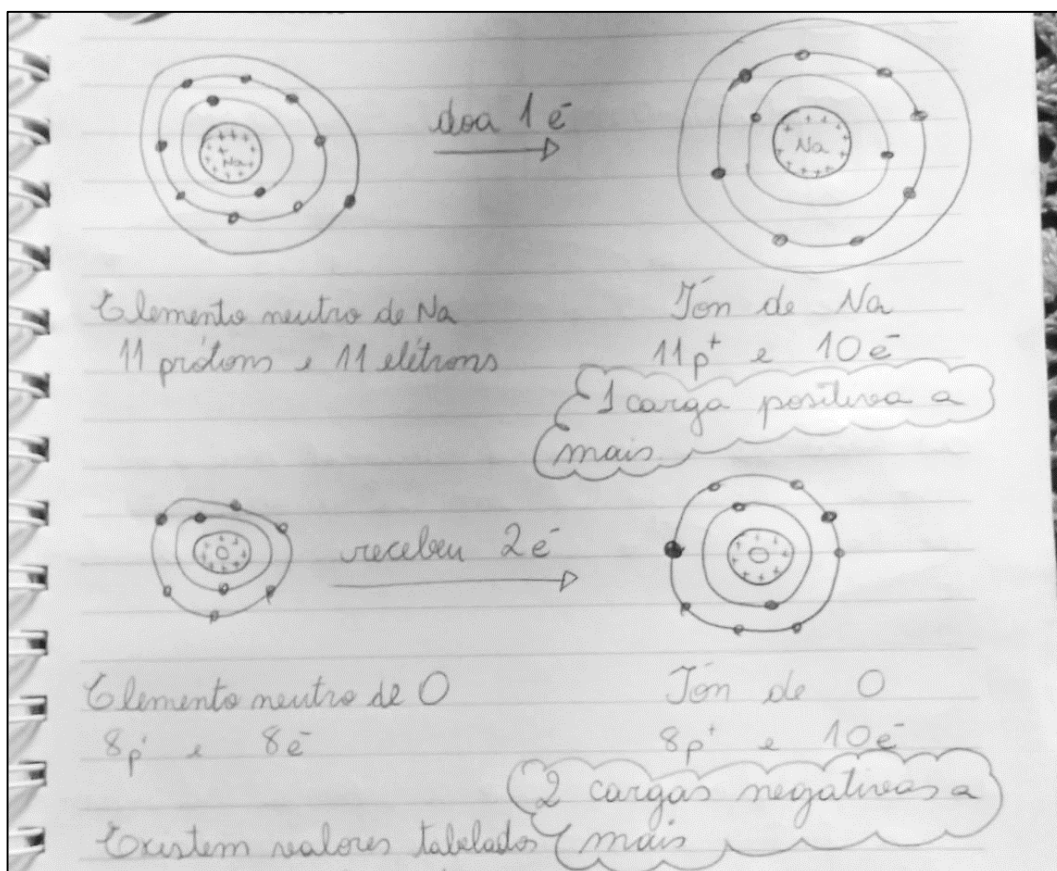 Na
doa 1 é
Na
Elemento neutro de Na
11 prótons e 11 elétrons
Íon de Na
11p⁺ e 10é
1 carga positiva a
mais
O
recebeu 2é
O
Elemento neutro de O
8p⁺ e 8é
Íon de O
8p⁺ e 10é
2 cargas negativas a
mais
Existem valores tabelados